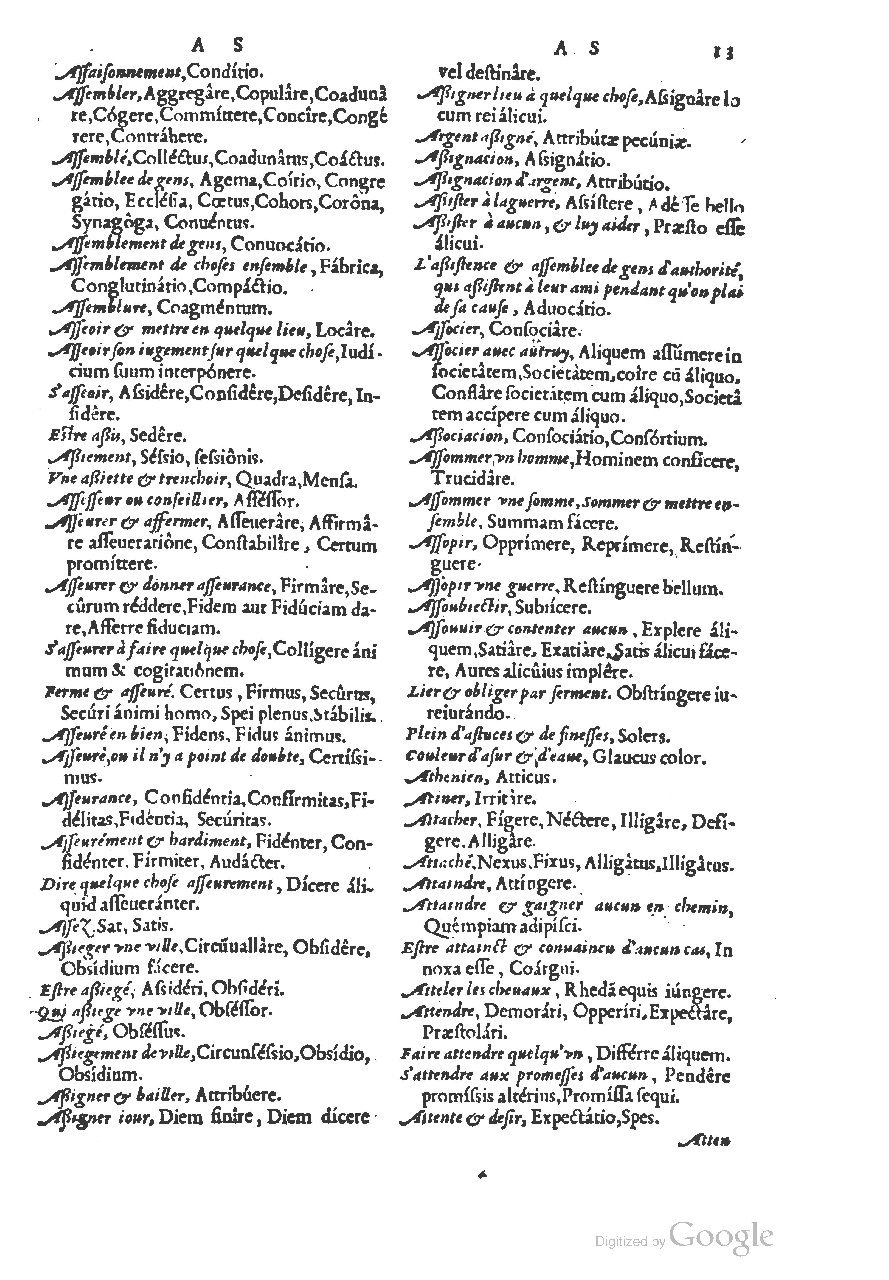 A S
Aſſaiſonnement, Condítio.
Aſſembler, Aggregâre, Copulâre, Coadunâ
re, Cógere, Committere, Concîre, Congé
rere, Contráhere.
Aſſemblé, Colléctus, Coadunâtus, Coáctus.
Aſſemblee de gens, Agema, Coítio, Congre
gátio, Eccléſia, Cœtus, Cohors, Corôna,
Synagôga, Conuéntus.
Aſſemblement de gens, Conuocátio.
Aſſemblement de choſes enſemble, Fábrica,
Conglutinátio, Compáctio.
Aſſemblure, Coagméntum.
Aſſeoir & mettre en quelque lieu, Locâre.
Aſſeoir ſon iugement ſur quelque choſe, Iudí-
cium ſuum interpónere.
S'aſſeoir, Aſsidêre, Conſidêre, Deſidêre, In-
ſidêre.
Eſtre aßis, Sedêre.
Aßiement, Séſsio, ſeſsiônis.
Vne aßiette & trenchoir, Quadra, Menſa.
Aſſeſſeur ou conſeillier, Aſſéſſor.
Aſſeurer & affermer, Aſſeuerâre, Affirmâ-
re aſſeueratiône, Conſtabilîre, Certum
promíttere.
Aſſeurer & donner aſſeurance, Firmâre, Se-
cûrum réddere, Fidem aut Fidúciam da-
re, Afferre fiduciam.
S'aſſeurer à faire quelque choſe, Collígere áni
mum & cogitatiônem.
Ferme & aſſeuré. Certus, Firmus, Secûrus,
Secúri ánimi homo, Spei plenus, Stábilis.
Aſſeuré en bien, Fidens, Fidus ánimus.
Aſſeuré, ou il n'y a point de doubte, Certíſsi-
mus.
Aſſeurance, Confidéntia, Confirmitas, Fi-
délitas, Fidéntia, Secúritas.
Aſſeurément & hardiment, Fidénter, Con-
fidénter. Fírmiter, Audácter.
Dire quelque choſe aſſeurement, Dícere áli-
quid aſſeueránter.
Aſſeζ. Sat, Satis.
Aßieger vne ville, Circũuallâre, Obſidêre,
Obsídium fácere.
Eſtre aßiegé, Aſsidéri, Obſidéri.
Qui aßiege vne ville, Obſéſſor.
Aßiegé, Obſéſſus.
Aßiegement de ville, Circunſéſsio, Obsídio,
Obsídium.
Aßigner & bailler, Attribúere.
Aßigner iour, Diem finîre, Diem dicere
A S 13
vel deſtinâre.
Aßigner lieu à quelque choſe, Aſsignâre lo
cum rei álicui.
Argent aßigné, Attribútæ pecúniæ.
Aßignacion, Aſsignátio.
Aßignacion d'argent, Attribútio.
Aßiſter à la guerre, Aſsiſtere, Adéſſe bello
Aßiſter à aucun, & luy aider, Præſto eſſe
álicui.
L'aßiſtence & aſſemblee de gens d'authorité,
qui aßiſtent à leur ami pendant qu'on plai
de ſa cauſe, Aduocátio.
Aſſocier, Conſociâre.
Aſſocier auec autruy, Aliquem aſſúmere in
ſocietâtem, Societâtem, coîre cũ áliquo.
Conflâre ſocietâtem cum áliquo, Societâ
tem accípere cum áliquo.
Aſſociacion, Conſociátio, Conſórtium.
Aſſommer vn homme, Hominem conficere,
Trucidâre.
Aſſommer vne ſomme, sommer & mettre en-
ſemble, Summam fácere.
Aſſopir, Opprímere, Reprímere, Reſtín-
guere.
Aſſopir vne guerre, Reſtínguere bellum.
Aſſoubiectir, Subiícere.
Aſſouuir & contenter aucun, Explere áli-
quem, Satiâre, Exatiâre, Satis álicui fáce-
re, Aures alicûius implêre.
Lier & obliger par ſerment. Obſtríngere iu-
reiurándo.
Plein d'aſtuces & de fineſſes, Solers.
Couleur d'aſur & d'eaue, Glaucus color.
Athenien, Atticus.
Atiner, Irritâre.
Attacher, Fígere, Néctere, Illigâre, Defí-
gere. Alligâre.
Attaché, Nexus, Fixus, Alligâtus, Illigâtus.
Attaindre, Attíngere.
Attaindre & gaigner aucun en chemin,
Quémpiam adipíſci.
Eſtre attainct & conuaincu d'aucun cas, In
noxa eſſe, Coárgui.
Atteler les cheuaux, Rhedâ equis iúngere.
Attendre, Demorári, Opperíri, Expectâre,
Præſtolári.
Faire attendre quelqu'vn, Differre áliquem.
S'attendre aux promeſſes d'aucun, Pendêre
promíſsis altérius, Promíſſa ſequi.
Attente & deſir, Expectátio, Spes.
Atten
Digitized by Google